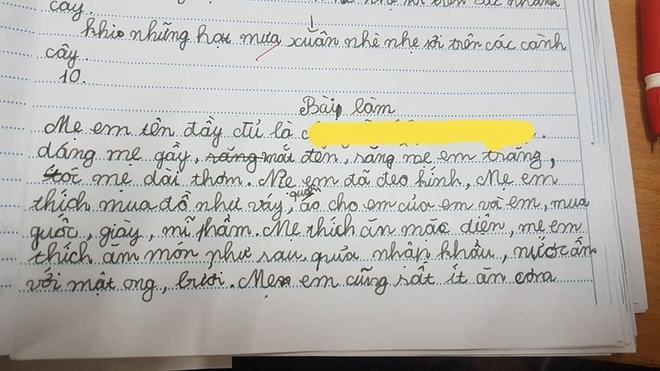 cây.
khio những hạt mưa xuân nhè nhẹ rơi trên các cành
cây.
10.
Bài làm
Mẹ em tên đầy đủ là
dáng mẹ gầy, răng mắt đen, răng mẹ em trắng,
tóc mẹ dài thơm. Mẹ em đã đeo kính, Mẹ em
thích mua đồ như váy, quần áo cho em của em và em, mua
guốc, giày, mĩ phẩm. Mẹ thích ăn mặc diện, mẹ em
thích ăn món như sau quửa nhập khẩu, nước ấm
với mật ong, bưởi. Mẹ em cũng rất ít ăn cơm